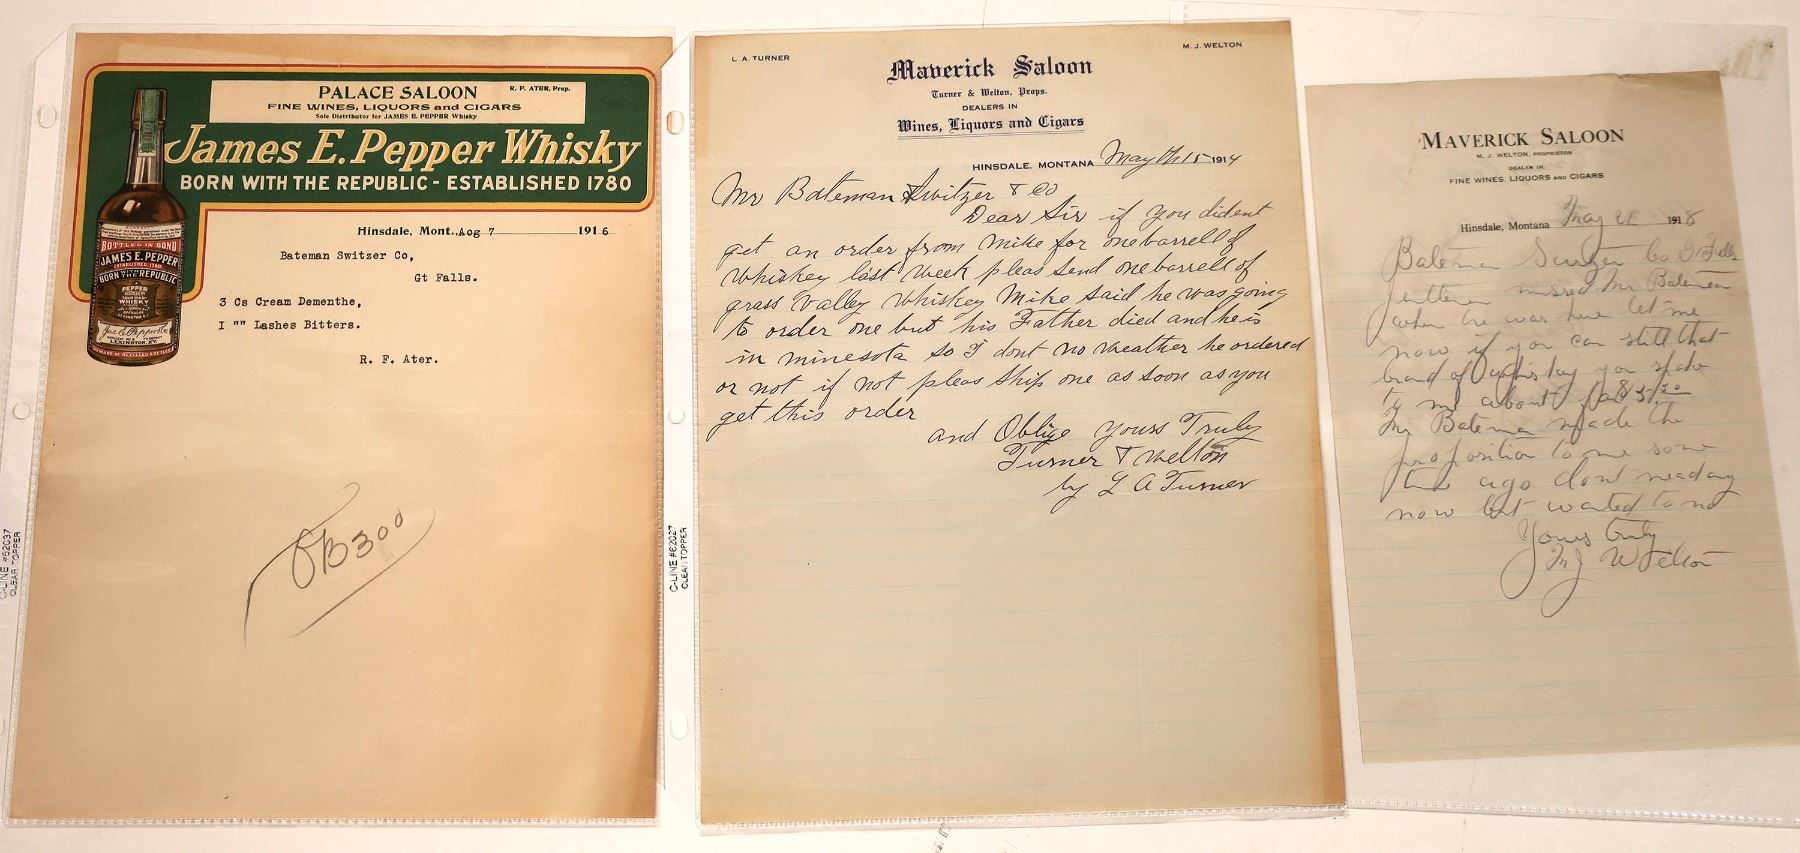 PALACE SALOON
R. F. ATER, Prop.
FINE WINES, LIQUORS and CIGARS
Sole Distributor for JAMES E. PEPPER Whisky
James E. Pepper Whisky
BORN WITH THE REPUBLIC - ESTABLISHED 1780
BOTTLED IN BOND
JAMES E. PEPPER
ESTABLISHED 1780
BORN WITH THE REPUBLIC
PEPPER
WHISKY
Jas. E. Pepper & Co
LEXINGTON, KY.
BEWARE OF REFILLED BOTTLES
Hinsdale, Mont., Aog 7 1916
Bateman Switzer Co,
Gt Falls.
3 Cs Cream Dementhe,
I "" Lashes Bitters.
R. F. Ater.
OB300
C-LINE #62037
CLEAR TOPPER
L. A. TURNER
M. J. WELTON
Maverick Saloon
Turner & Welton, Props.
DEALERS IN
Wines, Liquors and Cigars
HINSDALE, MONTANA May th 15 1914
Mr Bateman Switzer & Co
Dear Sir if you dident
get an order from Mike for one barrell of
whiskey last week pleas send one barrell of
grass valley whiskey Mike said he was going
to order one but his Father died and he is
in minesota so I dont no weather he ordered
or not if not pleas ship one as soon as you
get this order
and Oblige Yours Truly
Turner & Welton
by L A Turner
C-LINE #62027
CLEAR TOPPER
MAVERICK SALOON
M. J. WELTON, PROPRIETOR
DEALER IN
FINE WINES, LIQUORS AND CIGARS
Hinsdale, Montana May 21 1918
Bateman Switzer Co Gt Falls
missed Mr Bateman
when he was here let me
now if you can still that
brand of whiskey you spoke
to me about
Mr Bateman made the
proposition to me some
time ago dont need any
now but wanted to no
Yours truly
M J Welton